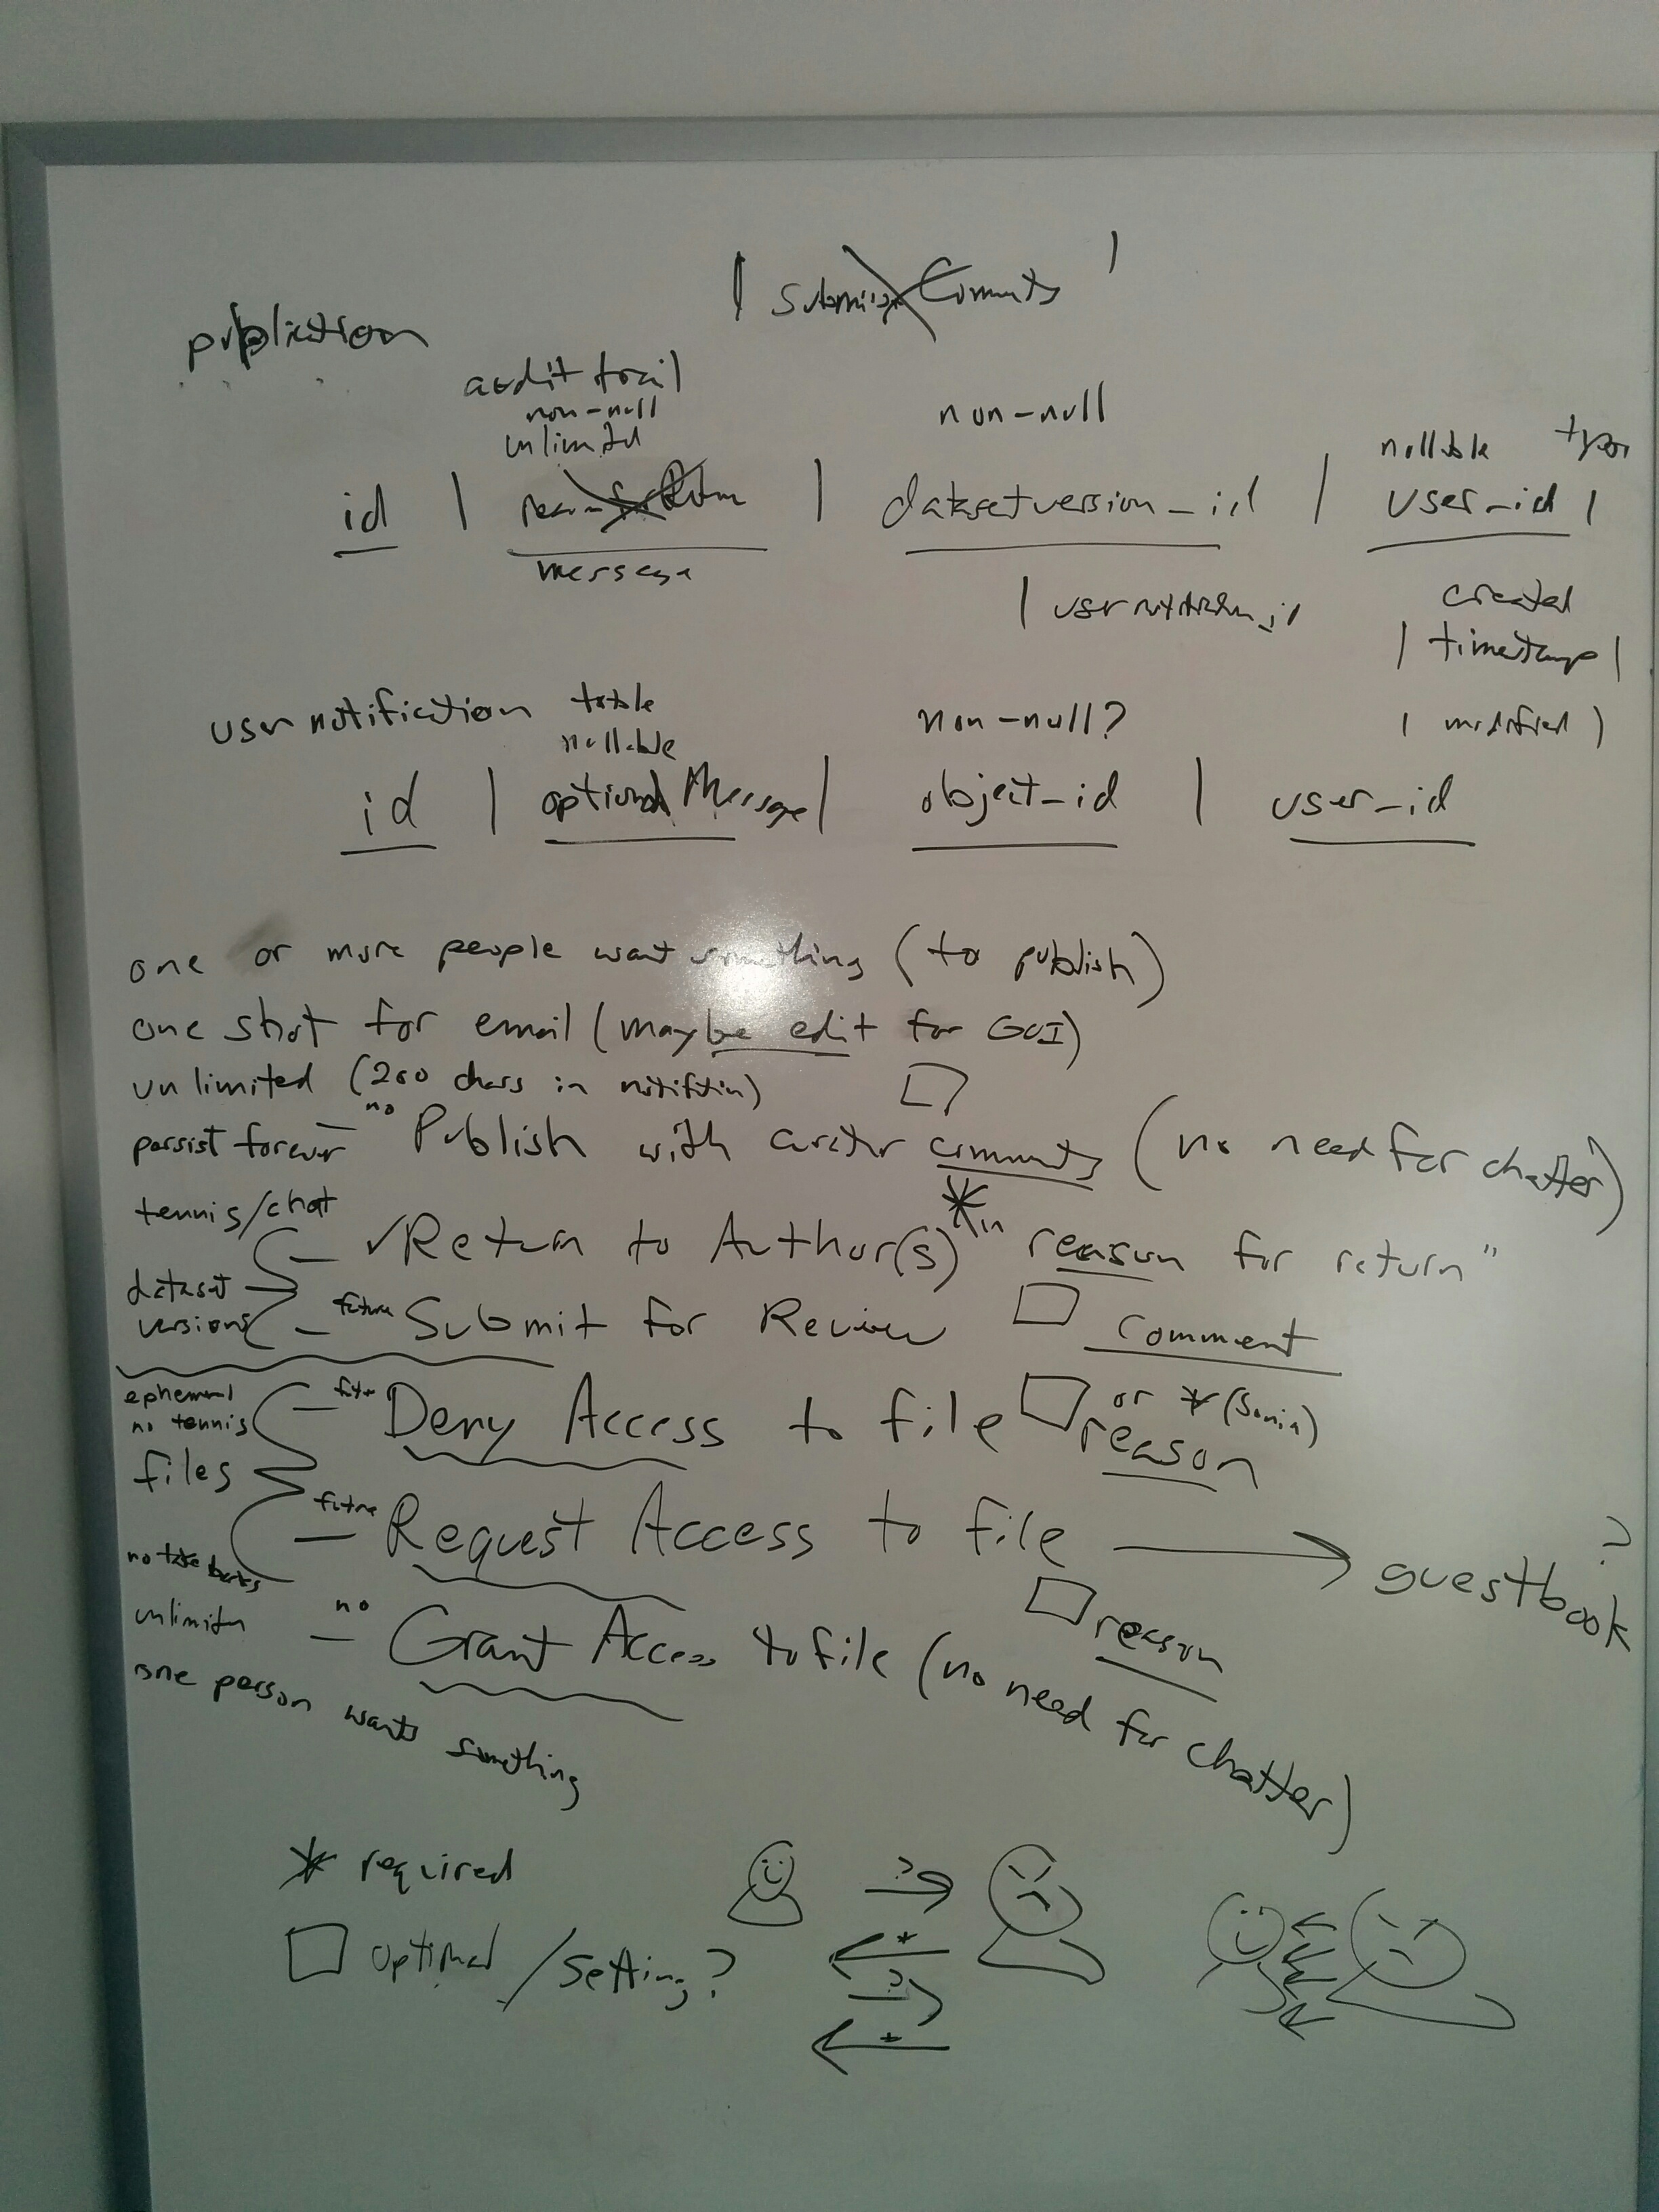 | Submission Comments |
publication
audit trail
non-null
unlimited
non-null
nullable
id | | datasetversion_id | user_id |
message
| usernotification_id
created
| timestamp |
| modified |
user notification table
nullable
non-null?
id | optional Message | object_id | user_id
one or more people want something (to publish)
one shot for email (maybe edit for GUI)
unlimited (200 chars in notifitin)
persist forever
no
– Publish with curator comments (no need for chatter)
tennis/chat
dataset versions
– ✓Return to Author(s) * "reason for return"
– future Submit for Review □ comment
ephemeral
no tennis
files
– future Deny Access to file □ or * (Sonia)
reason
– future Request Access to file → guestbook ?
no take backs
□ reason
– no Grant Access to file (no need for chatter)
one person wants something
* required
□ optional / setting?
? →
← *
? →
← *